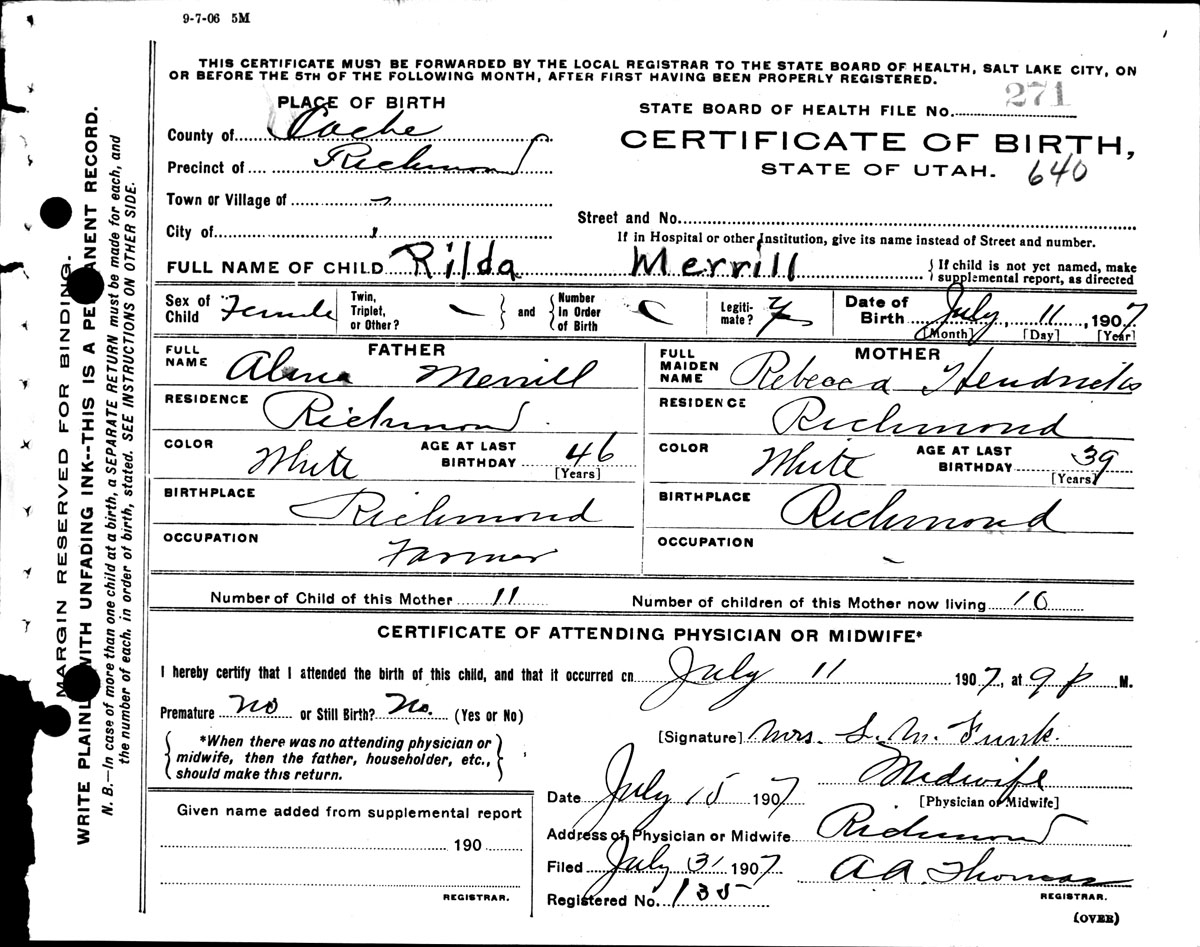 9-7-06 5M
THIS CERTIFICATE MUST BE FORWARDED BY THE LOCAL REGISTRAR TO THE STATE BOARD OF HEALTH, SALT LAKE CITY, ON
OR BEFORE THE 5TH OF THE FOLLOWING MONTH, AFTER FIRST HAVING BEEN PROPERLY REGISTERED.
PLACE OF BIRTH
STATE BOARD OF HEALTH FILE No. 271
County of Cache
CERTIFICATE OF BIRTH,
Precinct of Richmond
STATE OF UTAH. 640
Town or Village of
Street and No.
City of
If in Hospital or other Institution, give its name instead of Street and number.
FULL NAME OF CHILD Rilda Merrill { If child is not yet named, make
supplemental report, as directed
Sex of Child Female Twin, Triplet, or Other? and Number in Order of Birth Legiti-mate? y Date of Birth July 11, 1907
[Month] [Day] [Year]
FATHER
MOTHER
FULL NAME Alma Merrill
FULL MAIDEN NAME Rebecca Hendricks
RESIDENCE Richmond
RESIDENCE Richmond
COLOR White AGE AT LAST BIRTHDAY 46 [Years]
COLOR White AGE AT LAST BIRTHDAY 39 [Years]
BIRTHPLACE Richmond
BIRTHPLACE Richmond
OCCUPATION Farmer
OCCUPATION -
Number of Child of this Mother 11 Number of children of this Mother now living 10
CERTIFICATE OF ATTENDING PHYSICIAN OR MIDWIFE*
I hereby certify that I attended the birth of this child, and that it occurred on July 11 1907, at 9 p M.
Premature No or Still Birth? No. (Yes or No)
[Signature] Mrs. S. M. Funk.
{ *When there was no attending physician or
midwife, then the father, householder, etc.,
should make this return. }
Midwife
[Physician or Midwife]
Date July 15 1907
Given name added from supplemental report
Address of Physician or Midwife Richmond
190
Filed July 31 1907 A. A. Thomas
REGISTRAR.
REGISTRAR.
Registered No. 135
(OVER)
MARGIN RESERVED FOR BINDING.
WRITE PLAINLY WITH UNFADING INK--THIS IS A PERMANENT RECORD.
N. B.—In case of more than one child at a birth, a SEPARATE RETURN must be made for each, and
the number of each, in order of birth, stated. SEE INSTRUCTIONS ON OTHER SIDE.